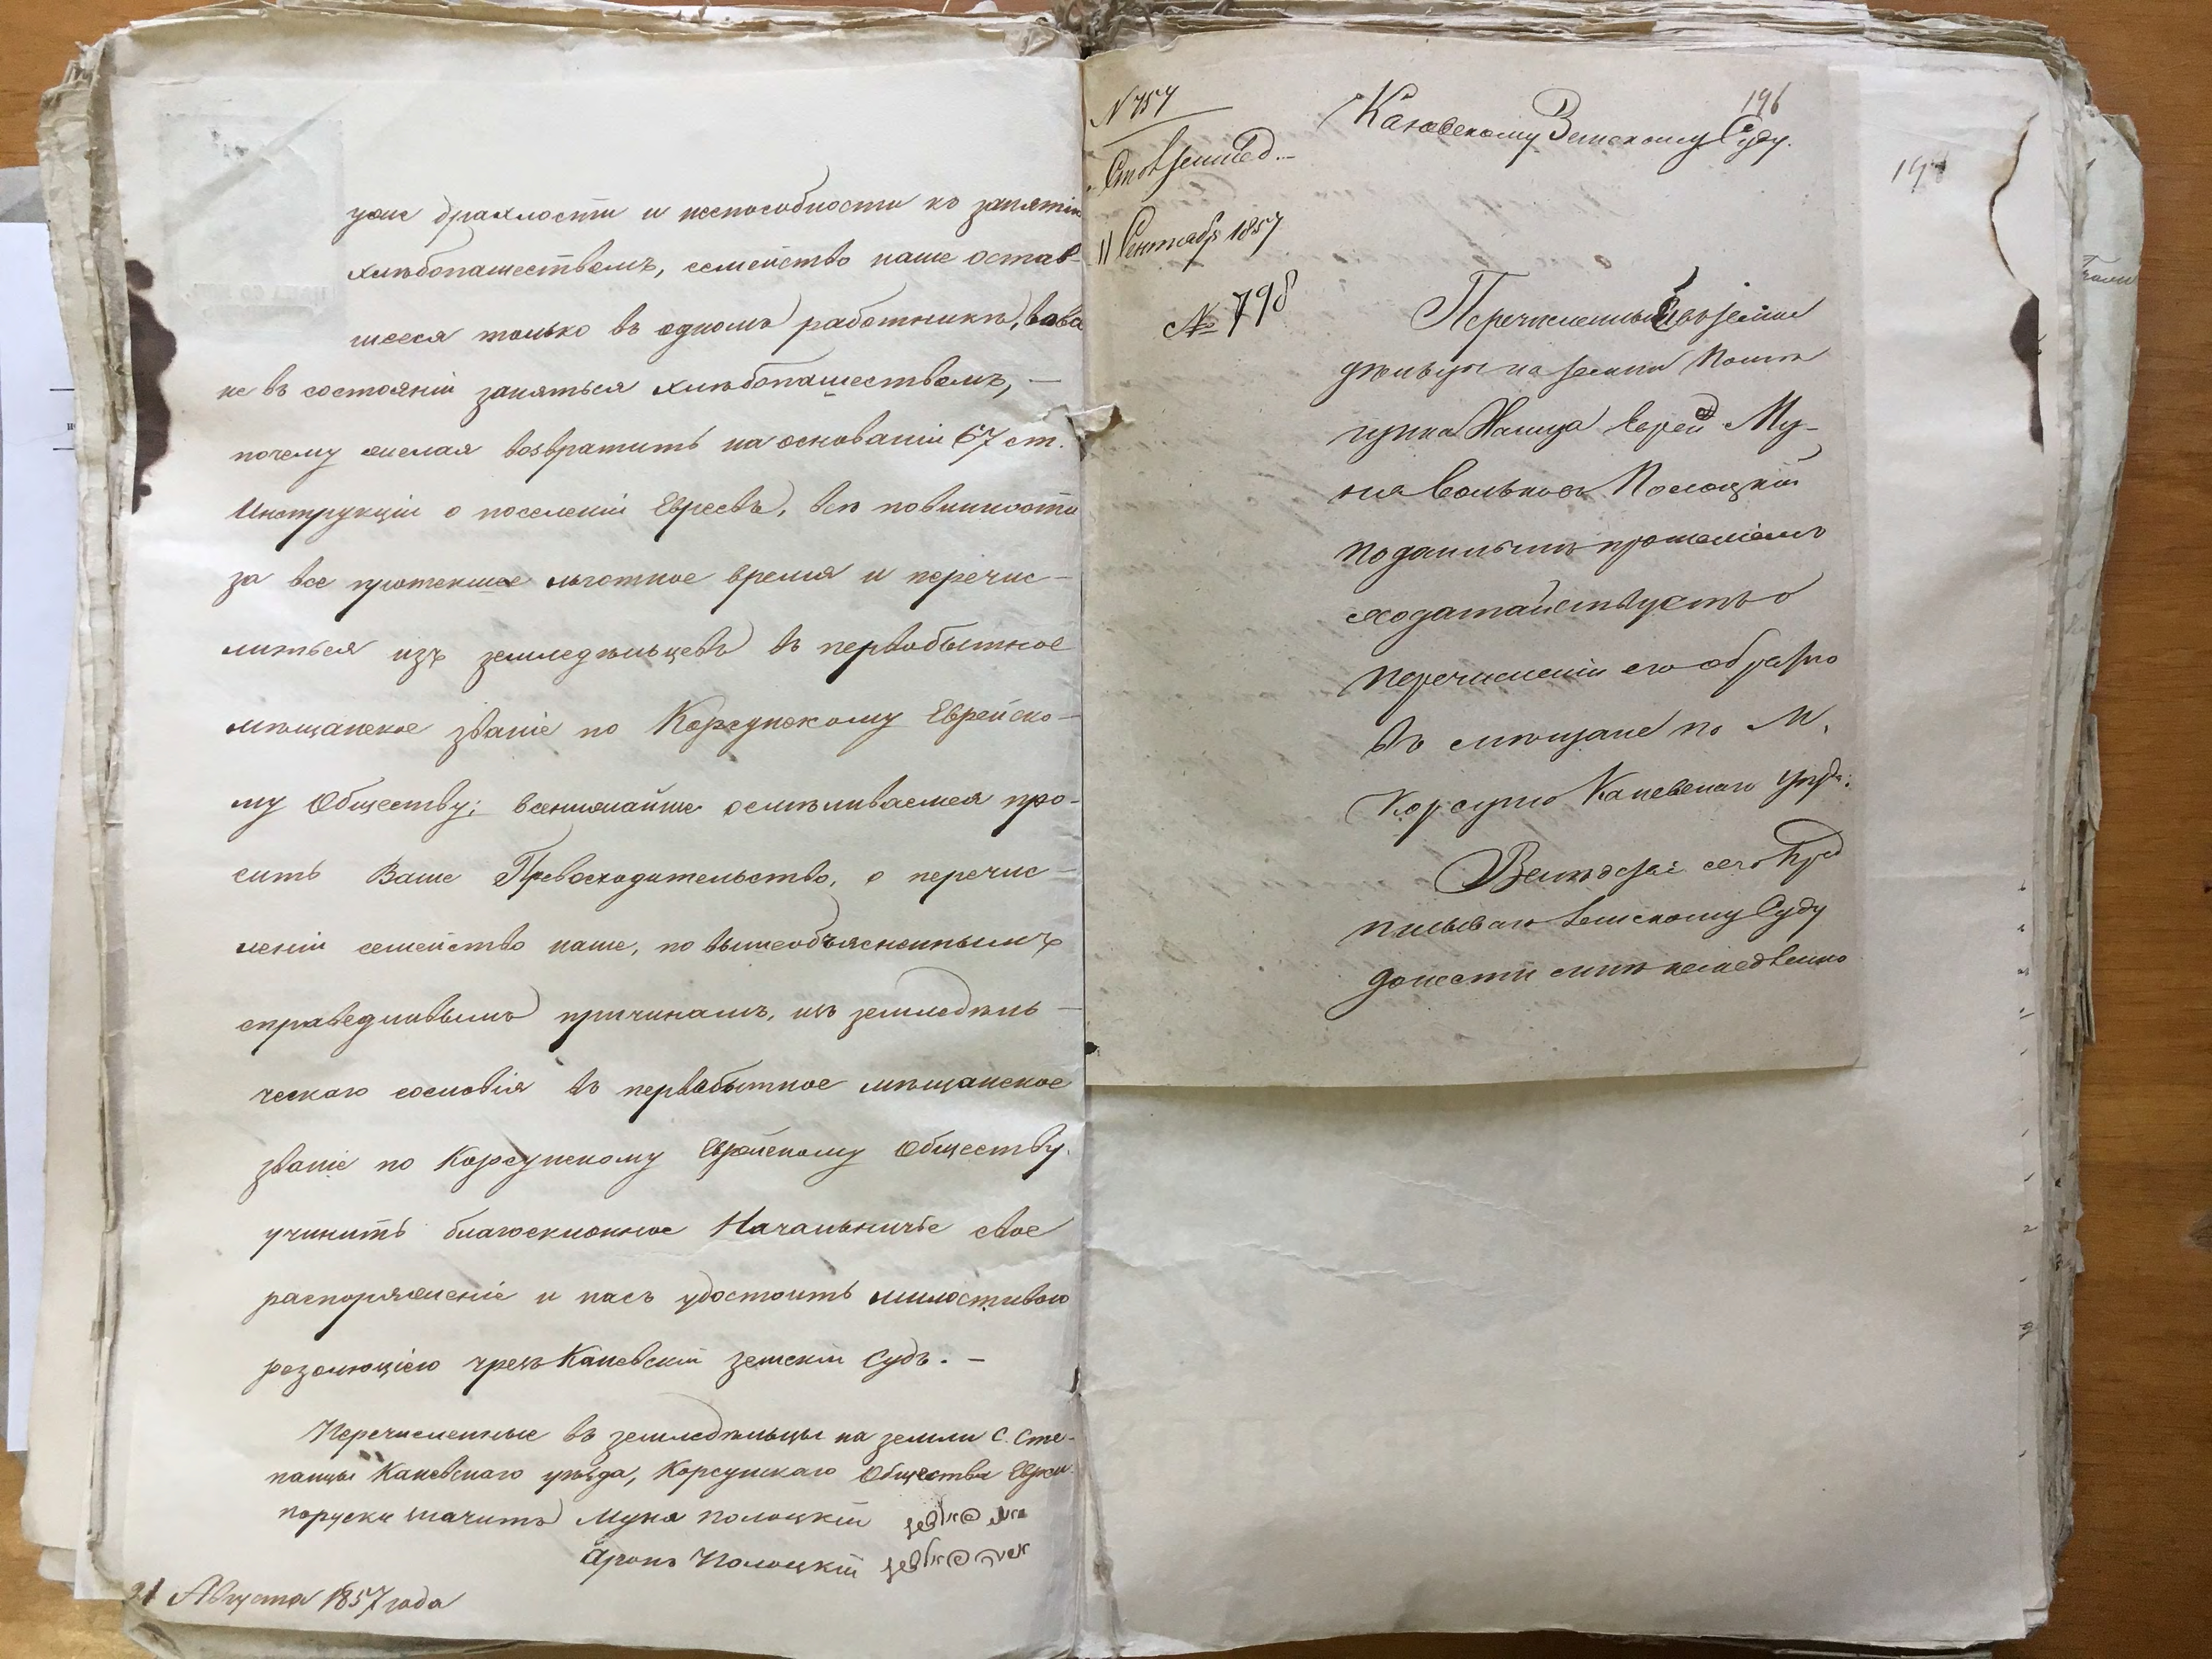 уже дряхлости и неспособности къ занятію
хлѣбопашествомъ, семейство наше остав-
шееся только въ одномъ работникѣ, вовсе
не въ состояніи заняться хлѣбопашествомъ, —
почему желая возвратить на основаніи 67 ст.
Инструкціи о поселеніи Евреевъ, всѣ повинности
за все протекшее льготное время и перечис-
литься изъ земледѣльцевъ въ первобытное
мѣщанское званіе по Корсунскому Еврейско-
му Обществу; всенижайше осмѣливаемся про-
сить Ваше Превосходительство, о перечис-
леніи семейство наше, по вышеобъясненнымъ
справедливымъ причинамъ, изъ земледѣль-
ческаго сословія въ первобытное мѣщанское
званіе по Корсунскому Еврейскому Обществу,
учинить благосклонное Начальничье свое
распоряженіе и насъ удостоить милостивою
резолюціею чрезъ Каневскій земскій Судъ. —
Перечисленные въ земледѣльцы на земли с. Сте-
панцы Каневскаго уѣзда, Корсунскаго Общества Евреи
поруски значитъ Муня Полоцкій
Аронъ Полоцкій
21 Августа 1857 года
196
N 757
Каневскому Земскому Суду.
11 Сентября 1857
№ 798
Перечисленный въ земле
дѣльцы на земли Помѣ
щика Еврей Му-
ня Вольковъ Полоцкій
поданнымъ прошеніемъ
ходатайствуетъ о
перечисленіи его обратно
въ мѣщане по М.
Корсуню Каневскаго уѣзд:
Вслѣдствіе сего пред
писываю Земскому Суду
донести мнѣ немедленно